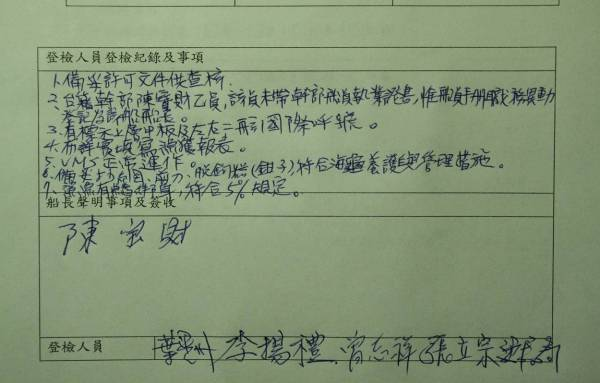 登檢人員登檢紀錄及事項
1. 備妥許可文件供查核.
2. 台籍幹部陳寶財乙員,該員未帶幹部船員執業證書,惟船員手冊職務異動
登記為該船船長。
3. 有標示上層甲板及左右二舷國際呼號。
4. 有詳實填寫漁獲報表。
5. VMS正常運作。
6. 備妥抄網、剪刀、脫鉤器(鉗子)符合海龜養護與管理措施。
7. 鯊魚有鰭, 符合5%規定。
船長聲明事項及簽收
陳宝財
登檢人員
李揚禮 曾志祥 張立宗